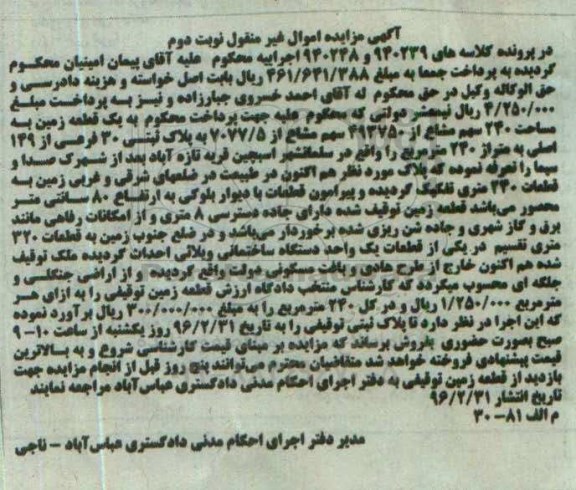 آگهی مزایده اموال غیر منقول نوبت دوم
در پرونده کلاسه های ۹۴۰۲۳۹ و ۹۴۰۲۴۸ اجراییه محکوم علیه آقای پیمان امینیان محکوم
گردیده به پرداخت جمعا به مبلغ ۴۶۱/۶۴۱/۳۸۸ ریال بابت اصل خواسته و هزینه دادرسی و
حق الوکاله وکیل در حق محکوم له آقای احمد خسروی جبارزاده و نیز به پرداخت مبلغ
۴/۲۵۰/۰۰۰ ریال نیمعشر دولتی که محکوم علیه جهت پرداخت محکوم به یک قطعه زمین به
مساحت ۲۴۰ سهم مشاع از ۴۹۳۷۵۰ سهم مشاع از ۷۰۷۷/۵ به پلاک ثبتی ۳۰ فرعی از ۱۴۹
اصلی به متراژ ۲۴۰ مترمربع را واقع در سلمانشهر اسبچین قریه تازه آباد بعد از شهرک صدا و
سیما را تعرفه نموده که پلاک مورد نظر هم اکنون در طبیعت در ضلعهای شرقی و غربی زمین به
قطعات ۲۴۰ متری تفکیک گردیده و پیرامون قطعات با دیوار بلوکی به ارتفاع ۸۰ سانتی متر
محصور می‌باشد قطعه زمین توقیف شده دارای جاده دسترسی ۸ متری و از امکانات رفاهی مانند
برق و گاز شهری و جاده شن ریزی شده برخوردار می‌باشد و در ضلع جنوب زمین به قطعات ۳۲۰
متری تقسیم در یکی از قطعات یک واحد دستگاه ساختمانی ویلائی احداث گردیده ملک توقیف
شده هم اکنون خارج از طرح هادی و بافت مسکونی دولت واقع گردیده و از اراضی جنگلی و
جلگه ای محسوب میگردد که کارشناس منتخب دادگاه ارزش قطعه زمین توقیفی را به ازای هر
مترمربع ۱/۲۵۰/۰۰۰ ریال و در کل ۲۴۰ مترمربع را به مبلغ ۳۰۰/۰۰۰/۰۰۰ ریال برآورد نموده
که این اجرا در نظر دارد تا پلاک ثبتی توقیفی را به تاریخ ۹۶/۲/۳۱ روز یکشنبه از ساعت ۱۰-۹
صبح بصورت حضوری بفروش برساند که مزایده بر مبنای قیمت کارشناسی شروع و به بالاترین
قیمت پیشنهادی فروخته خواهد شد متقاضیان محترم می‌توانند پنج روز قبل از انجام مزایده جهت
بازدید از قطعه زمین توقیفی به دفتر اجرای احکام مدنی دادگستری عباس‌آباد مراجعه نمایند
تاریخ انتشار ۹۶/۲/۳۱
م الف ۸۱-۳۰
مدیر دفتر اجرای احکام مدنی دادگستری عباس‌آباد - ناجی